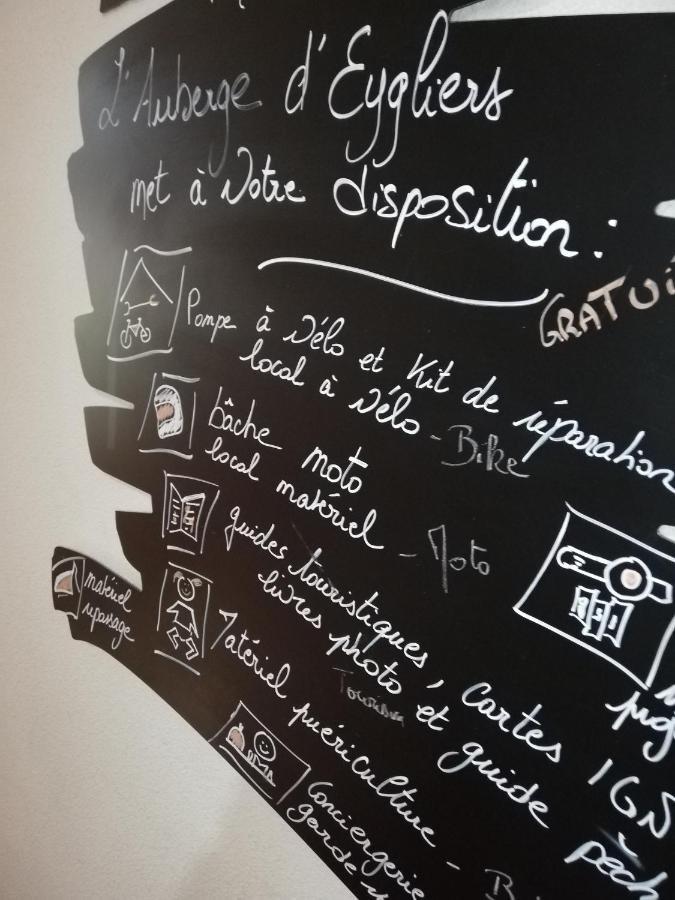 L'Auberge d'Eygliers
met à Votre disposition :
GRATUI
Pompe à vélo et Kit de réparation
local à vélo - Bike
bâche moto
local matériel - Moto
guides touristiques, Cartes IGN
livres photo et guide pêch
matériel
repassage
Matériel puériculture -
Conciergerie
garde